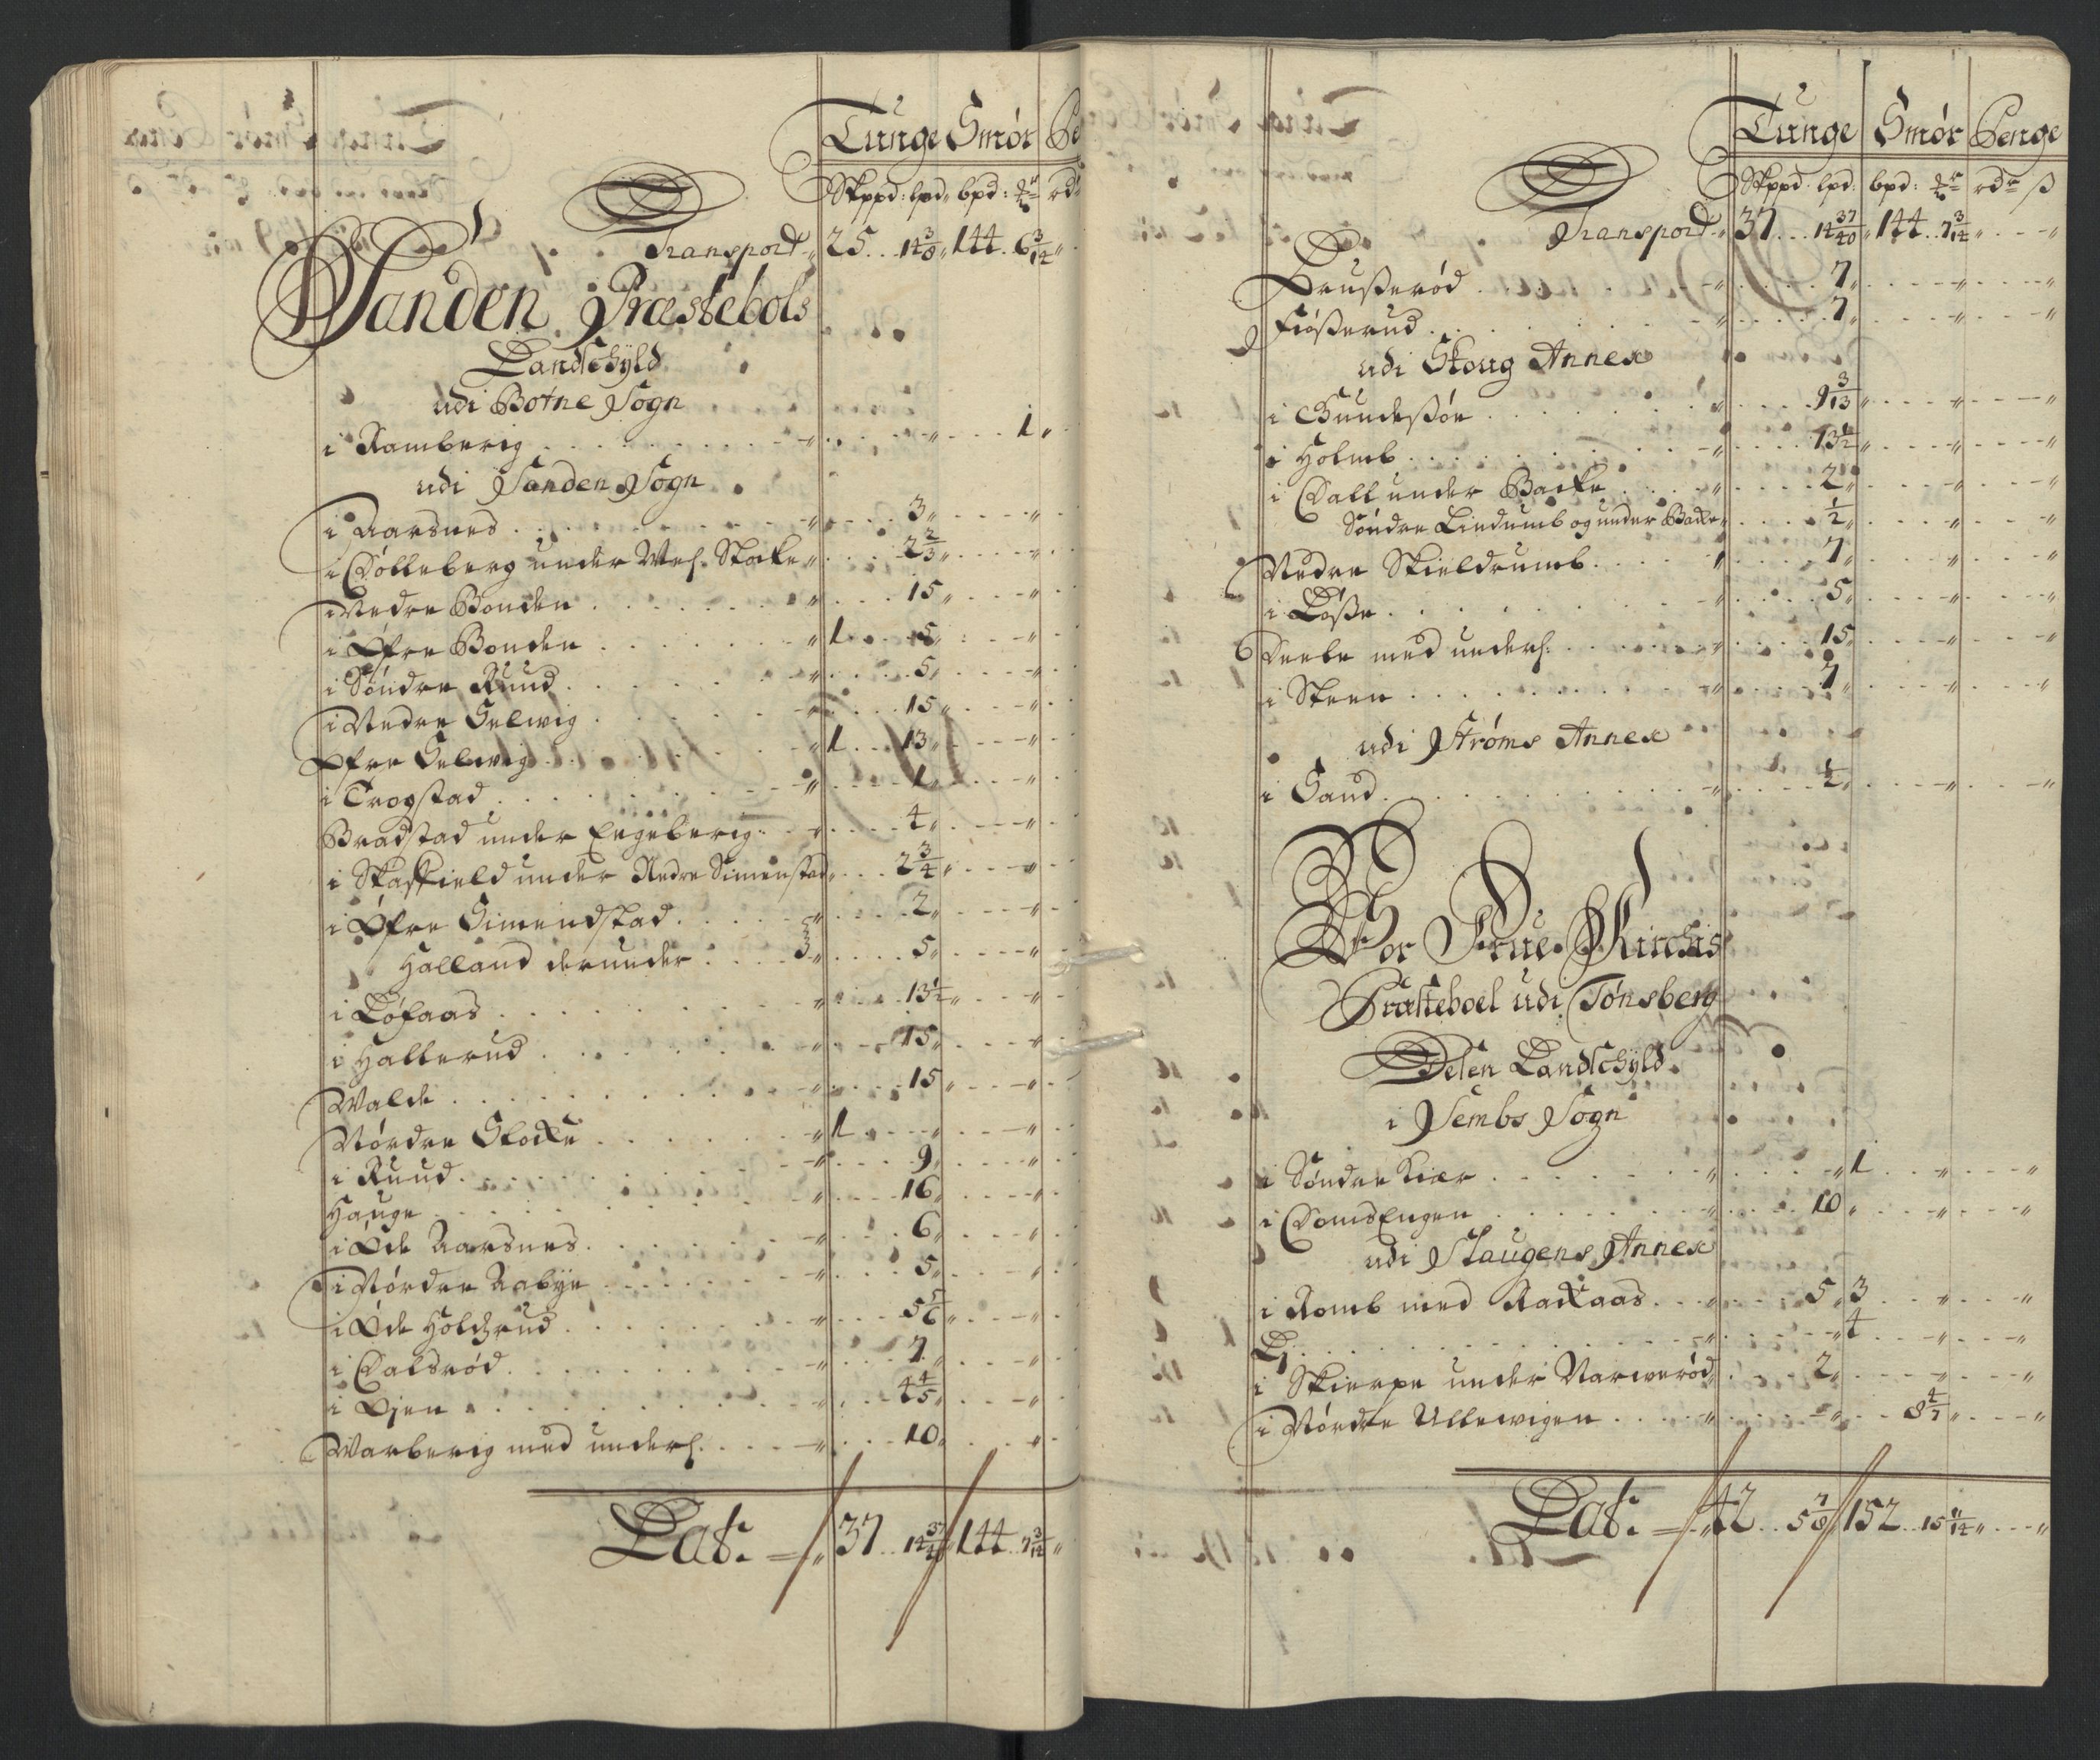 Tunge Smør Pe
Skppd: lpd: bpd: rd
Transport 25 . . 14 3/8 144 . 6 3/14
Sanden Præstebols
Landschÿld
udi Botne Sogn
i Ramberig . . . 1
udi Sanden Sogn
i Aarsnes . . . 3
i Dølleberg under Stocke . . . 2 2/3
i Nedre Bonden . . . 15
i Øfre Bonden . . . 1 . . 5
i Søndre Ruud . . . 5
i Nedre Selwig . . . 15
Øfre Selwig . . . 1 . . 13
i Trogstad . . . 1
Bradstad under Engeberig . . . 4
i Skafffield under Nedre Simenstad . . . 2 3/4
i Øfre Simendstad . . . 2
Halland derunder . . . 5
i Løfaas . . . 13 1/2
i Hallerud . . . 15
Walde . . . 15
Nördre Stocke . . . 1
i Ruud . . . 9
Hauge . . . 16
i Øde Aarsnes . . . 6
i Nördre Aabÿe . . . 5
i Øde Holdzrud . . . 5 5/6
i Dalsrød . . . 7
i Øjen . . . 4 4/5
Warberig med underl. . . . 10
Lat. 37 . . 14 37/40 144 . . 7 3/14
Tunge Smør Penge
Skppd lpd: bpd: rdr ß
Transport 37 . . . 14 37/40 144 . . 7 3/14
Drusserød . . . 7
Fiøsserud . . . 7
udi Skoug Annex
i Gundessøe . . . 9 3/13
i Holmb . . . 13 1/2
i Dall under Backe . . . 2
Søndre Lindumb og under Backe . . . 1/2
Nedre Skieldrumb . . . 7
i Løsse . . . 5
med underl: . . . 15
i Steen . . . 7
udi Strøms Annex
i Sand . . . 1/2
Vor Frue Kirchis
Præsteboel udi Tønsberg
Delen Landschÿld
i Sembs Sogn
i Søndre Kier . . . 1
i DomsEngen . . . 10
udi Slaugens Annex
i Romb med Rackaas . . . 5 3
. . . 4
i Skierpe under Narwerød . . . 2
i Nördre Ullewigen . . . 8 4/7
Lat. 42 . . 5 7/8 152 . . 15 11/14